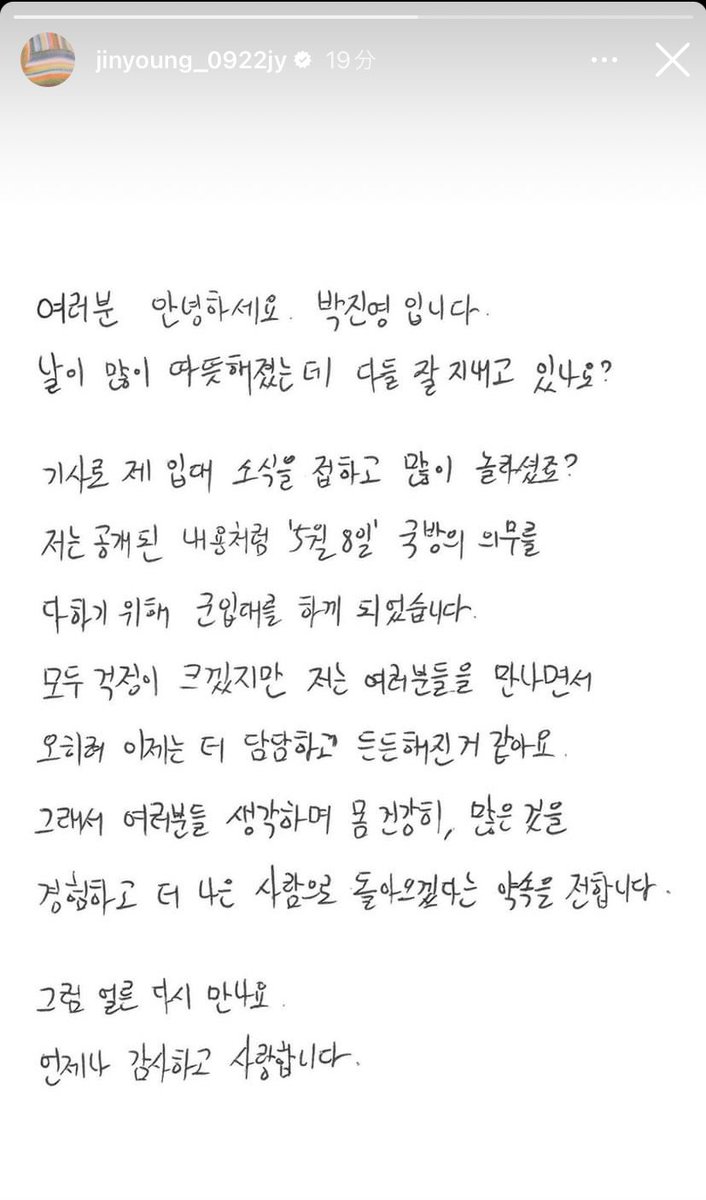 jinyoung_0922jy 19分
여러분 안녕하세요. 박진영입니다.
날이 많이 따뜻해졌는데 다들 잘 지내고 있나요?
기사로 제 입대 소식을 접하고 많이 놀라셨죠?
저는 공개된 내용처럼 '5월 8일' 국방의 의무를
다하기 위해 군입대를 하게 되었습니다.
모두 걱정이 크겠지만 저는 여러분들을 만나면서
오히려 이제는 더 담담하고 든든해진거 같아요.
그래서 여러분들 생각하며 몸 건강히, 많은 것을
경험하고 더 나은 사람으로 돌아오겠다는 약속을 전합니다.
그럼 얼른 다시 만나요.
언제나 감사하고 사랑합니다.